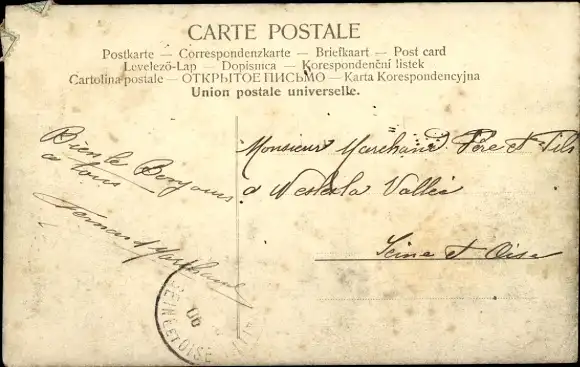 CARTE POSTALE
Postkarte — Correspondenzkarte — Briefkaart — Post card
Levelező-Lap — Dopisnica — Korespondenční listek
Cartolina postale — ОТКРЫТОЕ ПИСЬМО — Karta Korespondencyjna
Union postale universelle.
Bien le Bonjour
a tous
Fernand Marchand
Monsieur Marchand Père et Fils
a Nesles la Vallée
Seine et Oise
06
SEINE ET OISE